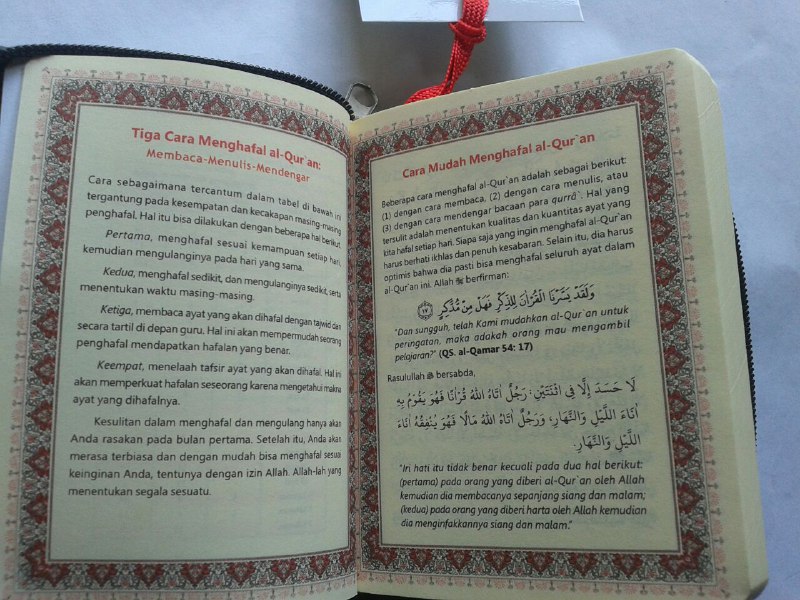 Tiga Cara Menghafal al-Qur`an:
Membaca-Menulis-Mendengar
Cara sebagaimana tercantum dalam tabel di bawah ini
tergantung pada kesempatan dan kecakapan masing-masing
penghafal. Hal itu bisa dilakukan dengan beberapa hal berikut,
Pertama, menghafal sesuai kemampuan setiap hari,
kemudian mengulanginya pada hari yang sama.
Kedua, menghafal sedikit, dan mengulanginya sedikit, serta
menentukan waktu masing-masing.
Ketiga, membaca ayat yang akan dihafal dengan tajwid dan
secara tartil di depan guru. Hal ini akan mempermudah seorang
penghafal mendapatkan hafalan yang benar.
Keempat, menelaah tafsir ayat yang akan dihafal. Hal ini
akan memperkuat hafalan seseorang karena mengetahui makna
ayat yang dihafalnya.
Kesulitan dalam menghafal dan mengulang hanya akan
Anda rasakan pada bulan pertama. Setelah itu, Anda akan
merasa terbiasa dan dengan mudah bisa menghafal sesuai
keinginan Anda, tentunya dengan izin Allah. Allah-lah yang
menentukan segala sesuatu.
Cara Mudah Menghafal al-Qur`an
Beberapa cara menghafal al-Qur`an adalah sebagai berikut:
(1) dengan cara membaca, (2) dengan cara menulis, atau
(3) dengan cara mendengar bacaan para qurrâ`. Hal yang
tersulit adalah menentukan kualitas dan kuantitas ayat yang
kita hafal setiap hari. Siapa saja yang ingin menghafal al-Qur`an
harus berhati ikhlas dan penuh kesabaran. Selain itu, dia harus
optimis bahwa dia pasti bisa menghafal seluruh ayat dalam
al-Qur`an ini. Allah ﷻ berfirman:
وَلَقَدْ يَسَّرْنَا الْقُرْاٰنَ لِلذِّكْرِ فَهَلْ مِنْ مُّدَّكِرٍ ﴿١٧﴾
"Dan sungguh, telah Kami mudahkan al-Qur`an untuk
peringatan, maka adakah orang mau mengambil
pelajaran?" (QS. al-Qamar 54: 17)
Rasulullah ﷺ bersabda,
لَا حَسَدَ إِلَّا فِي اثْنَتَيْنِ: رَجُلٌ اٰتَاهُ اللّٰهُ قُرْاٰنًا فَهُوَ يَقُوْمُ بِهِ
اٰنَاءَ اللَّيْلِ وَالنَّهَارِ، وَرَجُلٌ اٰتَاهُ اللّٰهُ مَالًا فَهُوَ يُنْفِقُهُ اٰنَاءَ
اللَّيْلِ وَالنَّهَارِ.
"Iri hati itu tidak benar kecuali pada dua hal berikut:
(pertama) pada orang yang diberi al-Qur`an oleh Allah
kemudian dia membacanya sepanjang siang dan malam;
(kedua) pada orang yang diberi harta oleh Allah kemudian
dia menginfakkannya siang dan malam."